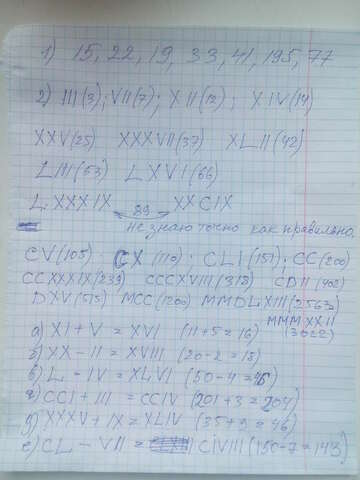 1) 15, 22, 19, 33, 41, 195, 77
2) III(3); VII(7); XII(12); XIV(14)
XXV(25) XXXVII(37) XLII(42)
LIII(53) LXVI(66)
LXXXIX 89 XXCIX
не знаю точно как правильно.
CV(105) CX(110); CLI(151); CC(200)
CCXXXIX(239) CCCXVIII(318) CDII(402)
DXV(515) MCC(1200) MMDLXIII(2563)
MMMXXII
(3022)
а) XI + V = XVI (11+5=16)
б) XX - II = XVIII (20-2=18)
в) L - IV = XLVI (50-4=46)
г) CCI + III = CCIV (201+3=204)
д) XXXV + IX = XLIV (35+9=46)
е) CL - VII = CIVIII (150-7=143)